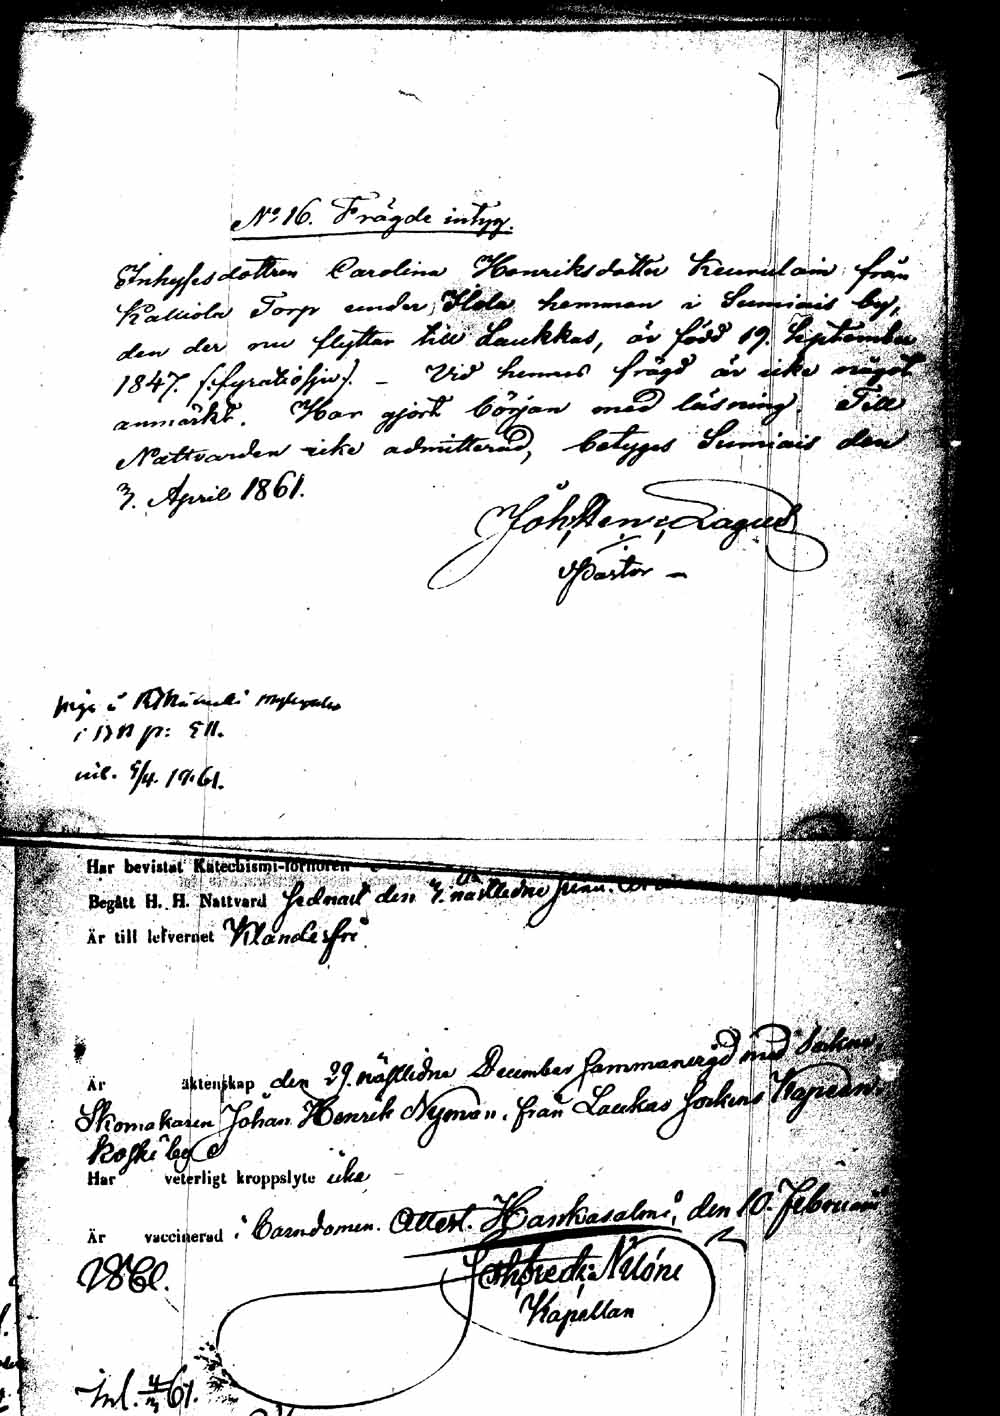 No 16. Frägde intyg.
Inhysesdottren Carolina Henriksdotter Keurulain från
Kalliola Torp under Hola hemman i Sumiais by,
den der nu flyttar till Laukkas, är född 19. September
1847. /:fyratiosju:/. – Vid hennes frägd är icke något
anmärkt. Har gjort början med läsning. Till
Nattvarden icke admitterad, betyges Sumiais den
3. April 1861.
Joh: Hen: Lagus
Pastor
piga
p: 511.
inl. 5/4. 1861.
Har bevistat Katechismi-förhören
Begått H. H. Nattvard sednast den 3. nästledne
Är till lefvernet Klanderfri
Är äktenskap den 29. nästledne December sammanvigd med Socknes
Skomakaren Johan Henrik Nyman från Laukas Sockens
koski by
Har veterligt kroppslyte icke
Är vaccinerad i barndomen. Attest. Hankasalmi, den 10. Februarii
1861.
Nilóni
Kapellan
Inl. 4/3 61.